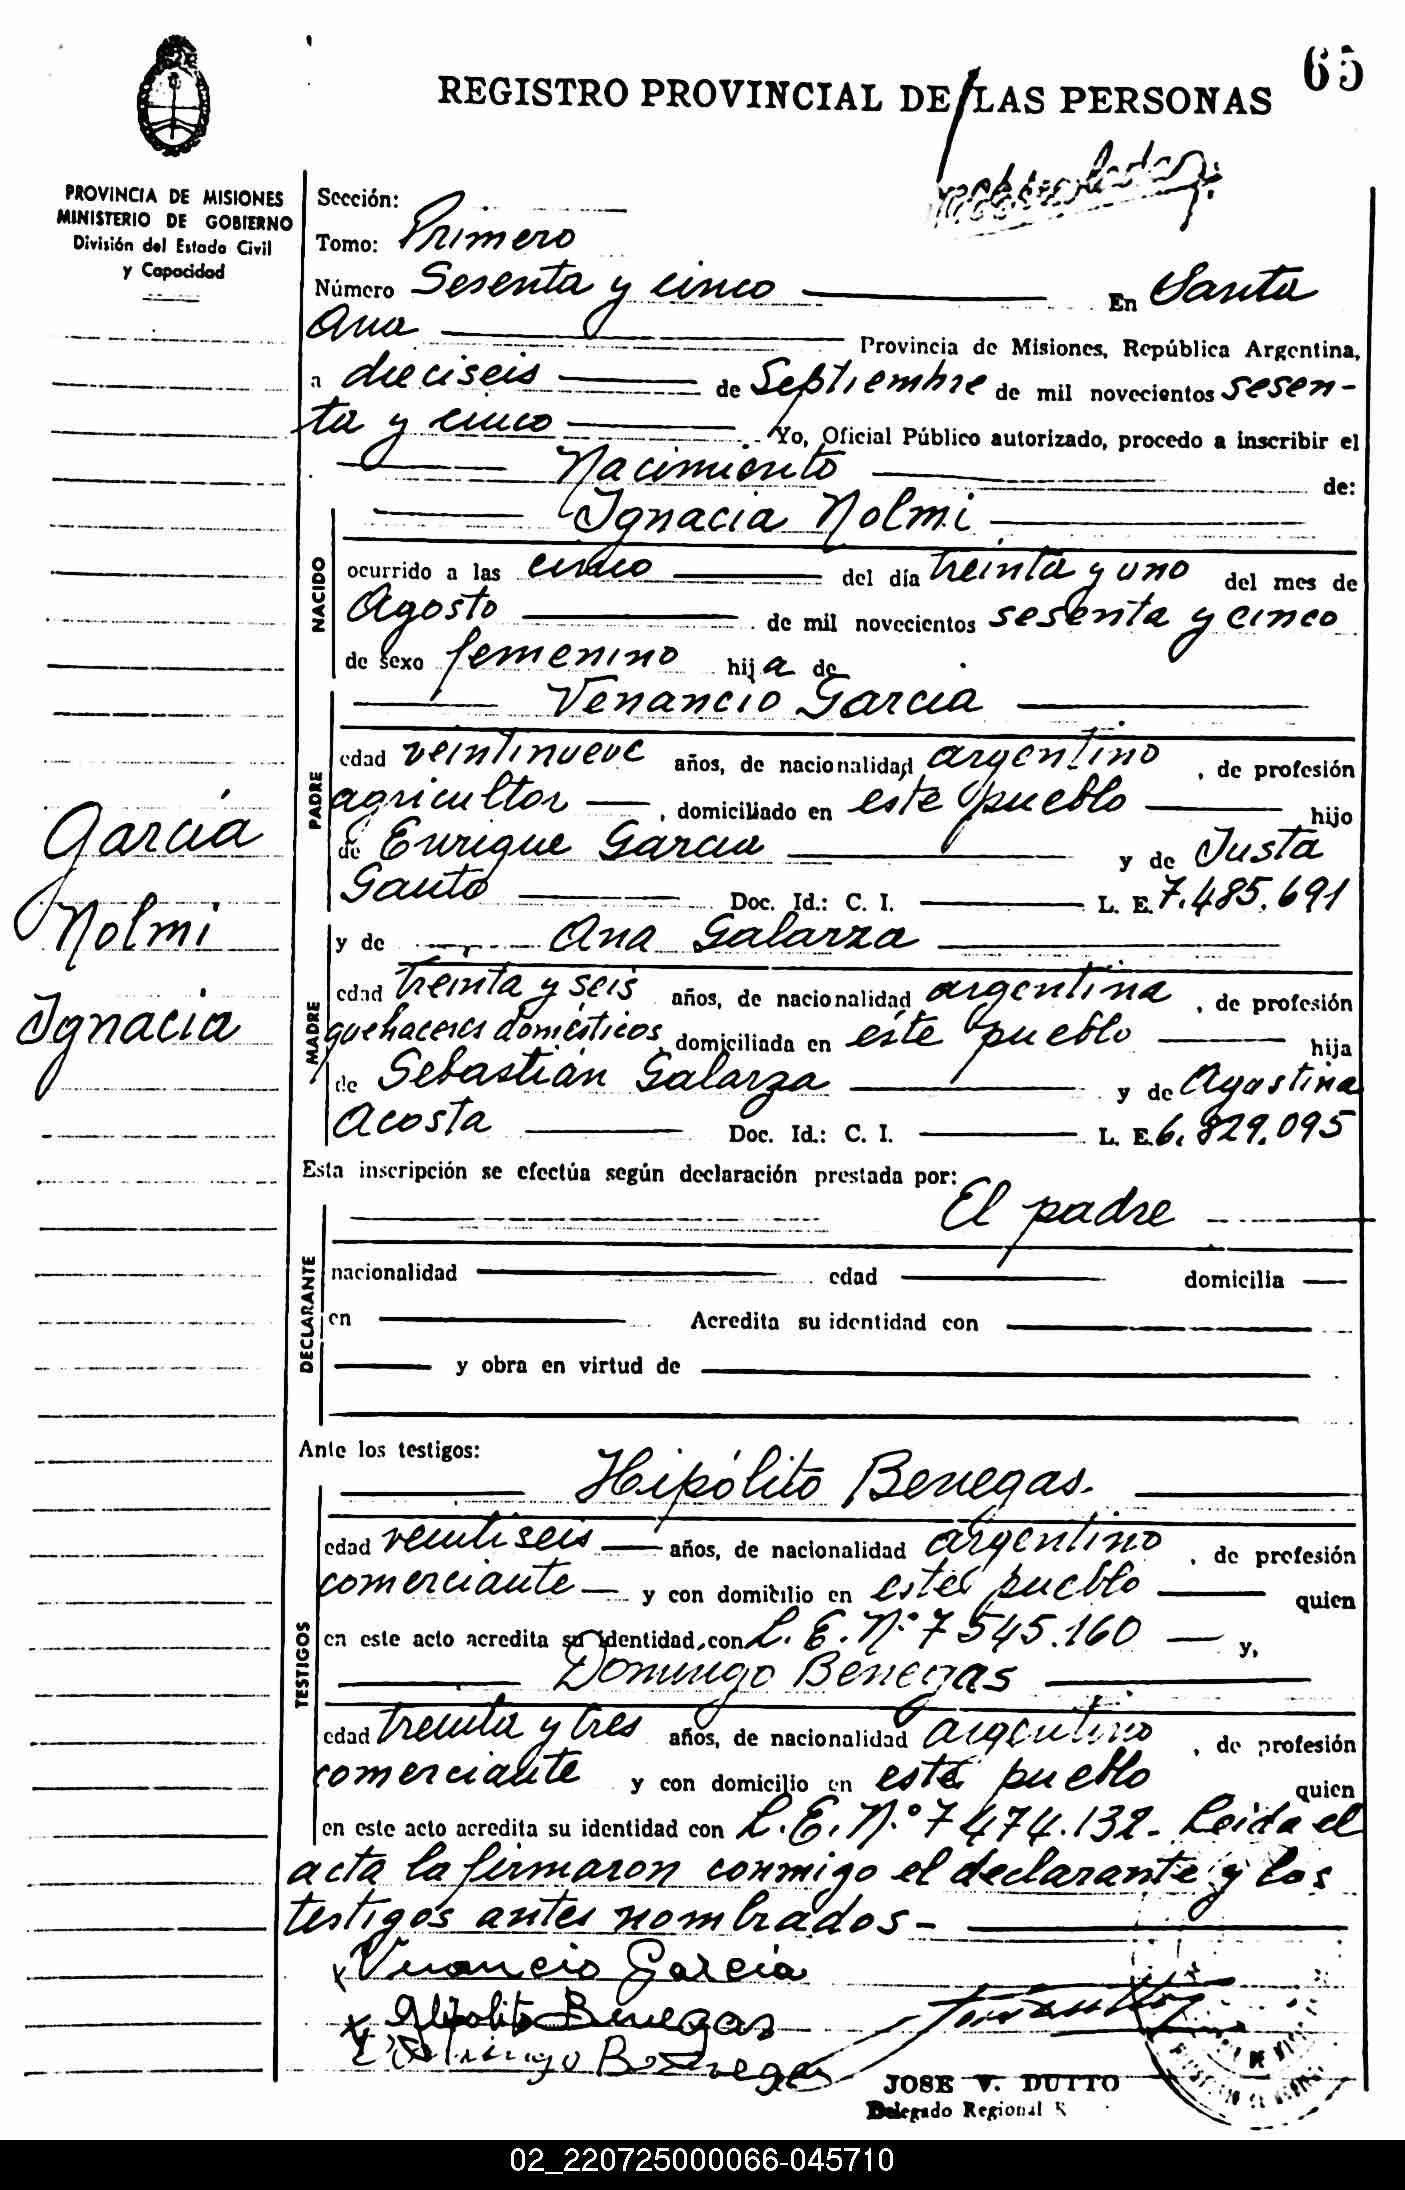 65
REGISTRO PROVINCIAL DE LAS PERSONAS
PROVINCIA DE MISIONES
MINISTERIO DE GOBIERNO
División del Estado Civil
y Capacidad
Sección:
Tomo: Primero
Número Sesenta y cinco En Santa
Ana Provincia de Misiones, República Argentina,
a dieciseis de Septiembre de mil novecientos sesen-
ta y cinco Yo, Oficial Público autorizado, procedo a inscribir el
Nacimiento de:
Ignacia Nolmi
NACIDO
ocurrido a las cinco del día treinta y uno del mes de
Agosto de mil novecientos sesenta y cinco
de sexo femenino hija de
Venancio Garcia
PADRE
edad veintinueve años, de nacionalidad argentino, de profesión
agricultor, domiciliado en este pueblo hijo
de Enrique Garcia y de Justa
Santo Doc. Id.: C. I. L. E. 7.485.691
García
Nolmi
Ignacia
y de Ana Galarza
MADRE
edad treinta y seis años, de nacionalidad argentina, de profesión
quehaceres domésticos, domiciliada en este pueblo hija
de Sebastián Galarza y de Agostina
Acosta Doc. Id.: C. I. L. E. 6.829.095
Esta inscripción se efectúa según declaración prestada por:
El padre
DECLARANTE
nacionalidad edad domicilia
en Acredita su identidad con
y obra en virtud de
Ante los testigos:
Hipólito Benegas.
TESTIGOS
edad veintiseis años, de nacionalidad argentino, de profesión
comerciante y con domicilio en este pueblo quien
en este acto acredita su identidad, con L. E. N.° 7545.160 y,
Domingo Benegas
edad treinta y tres años, de nacionalidad argentino, de profesión
comerciante y con domicilio en este pueblo quien
en este acto acredita su identidad con L. E. N.° 7474.132. Leida el
acta la firmaron conmigo el declarante y los
testigos antes nombrados-
x Venancio García
x Hipolito Benegas
x Domingo Benegas
JOSE V. DUTTO
Delegado Regional
02_220725000066-045710